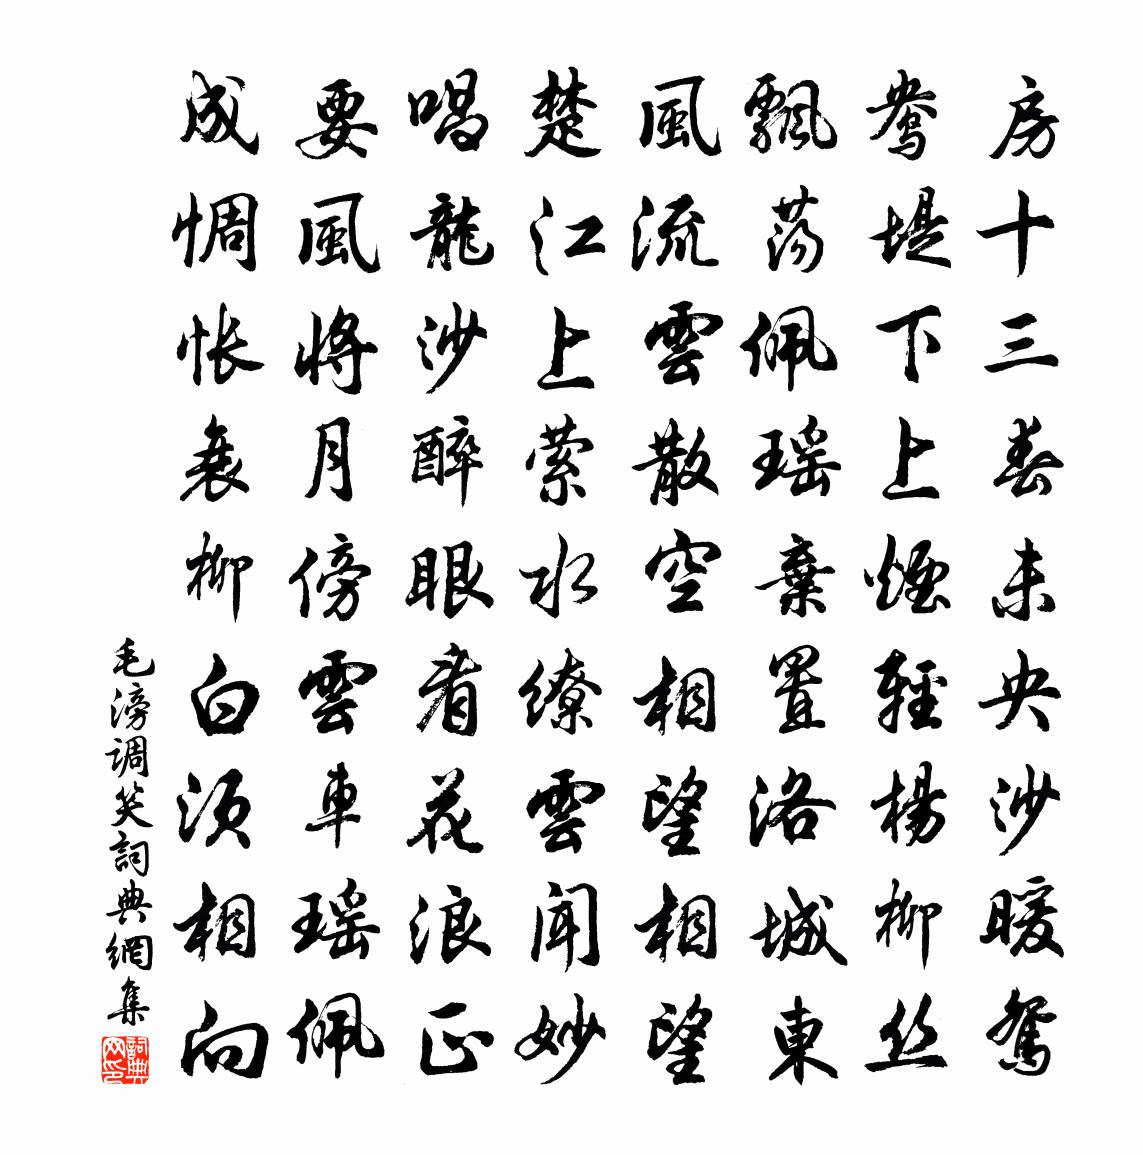 房十三春未央沙暖鴛
鴦堤下上煙輕楊柳丝
飄荡佩瑶棄置洛城東
風流雲散空相望相望
楚江上萦水缭雲聞妙
唱龍沙醉眼看花浪正
要風將月傍雲車瑶佩
成惆怅衰柳白须相向
毛滂调笑詞典網集
詞典网印